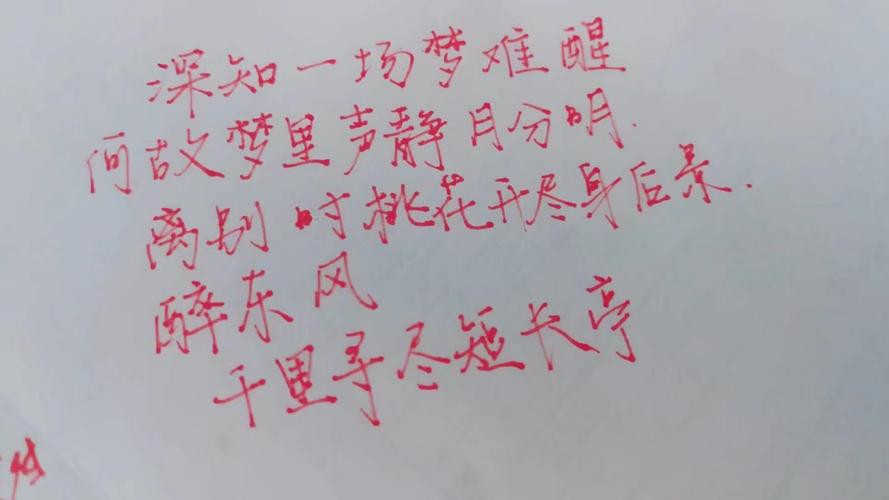 深知一场梦难醒
何故梦里声静月分明.
离别时桃花开尽身后景.
醉东风
千里寻尽短长亭